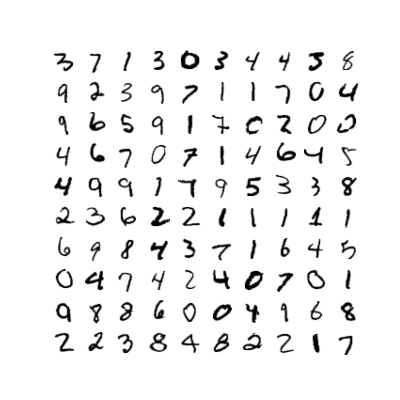 3 7 1 3 0 3 4 4 5 8
9 2 3 9 7 1 1 7 0 4
9 6 5 9 1 7 0 2 0 0
4 6 7 0 7 1 4 6 4 5
4 9 9 1 7 9 5 3 3 8
2 3 6 2 2 1 1 1 1 1
6 9 8 4 3 7 1 6 4 5
0 4 7 4 2 4 0 7 0 1
9 8 8 6 0 0 4 9 6 8
2 2 3 8 4 8 2 2 1 7